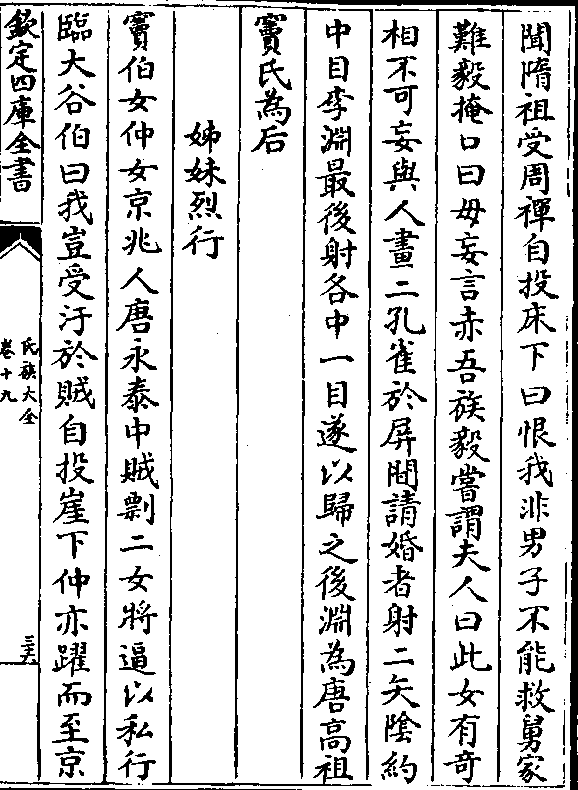 聞隋祖受周禪自投床下曰恨我非男子不能救舅家
難毅掩口曰毋妄言赤吾族毅嘗謂夫人曰此女有奇
相不可妄與人畫二孔雀於屏間請婚者射二矢陰約
中目李淵最後射各中一目遂以歸之後淵為唐高祖
竇氏為后
姊妹烈行
竇伯女仲女京兆人唐永泰中賊剽二女將逼以私行
臨大谷伯曰我豈受汙於賊自投崖下仲亦躍而至京
欽定四庫全書
氏族大全
卷十九
三六